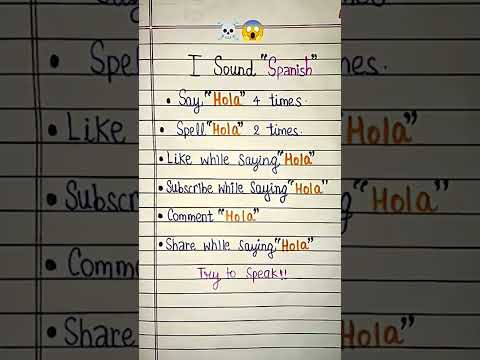 I Sound "Spanish"
• Say "Hola" 4 times.
• Spell "Hola" 2 times.
• Like while saying "Hola"
• Subscribe while saying "Hola"
• Comment "Hola"
• Share while saying "Hola"
Try to Speak!!